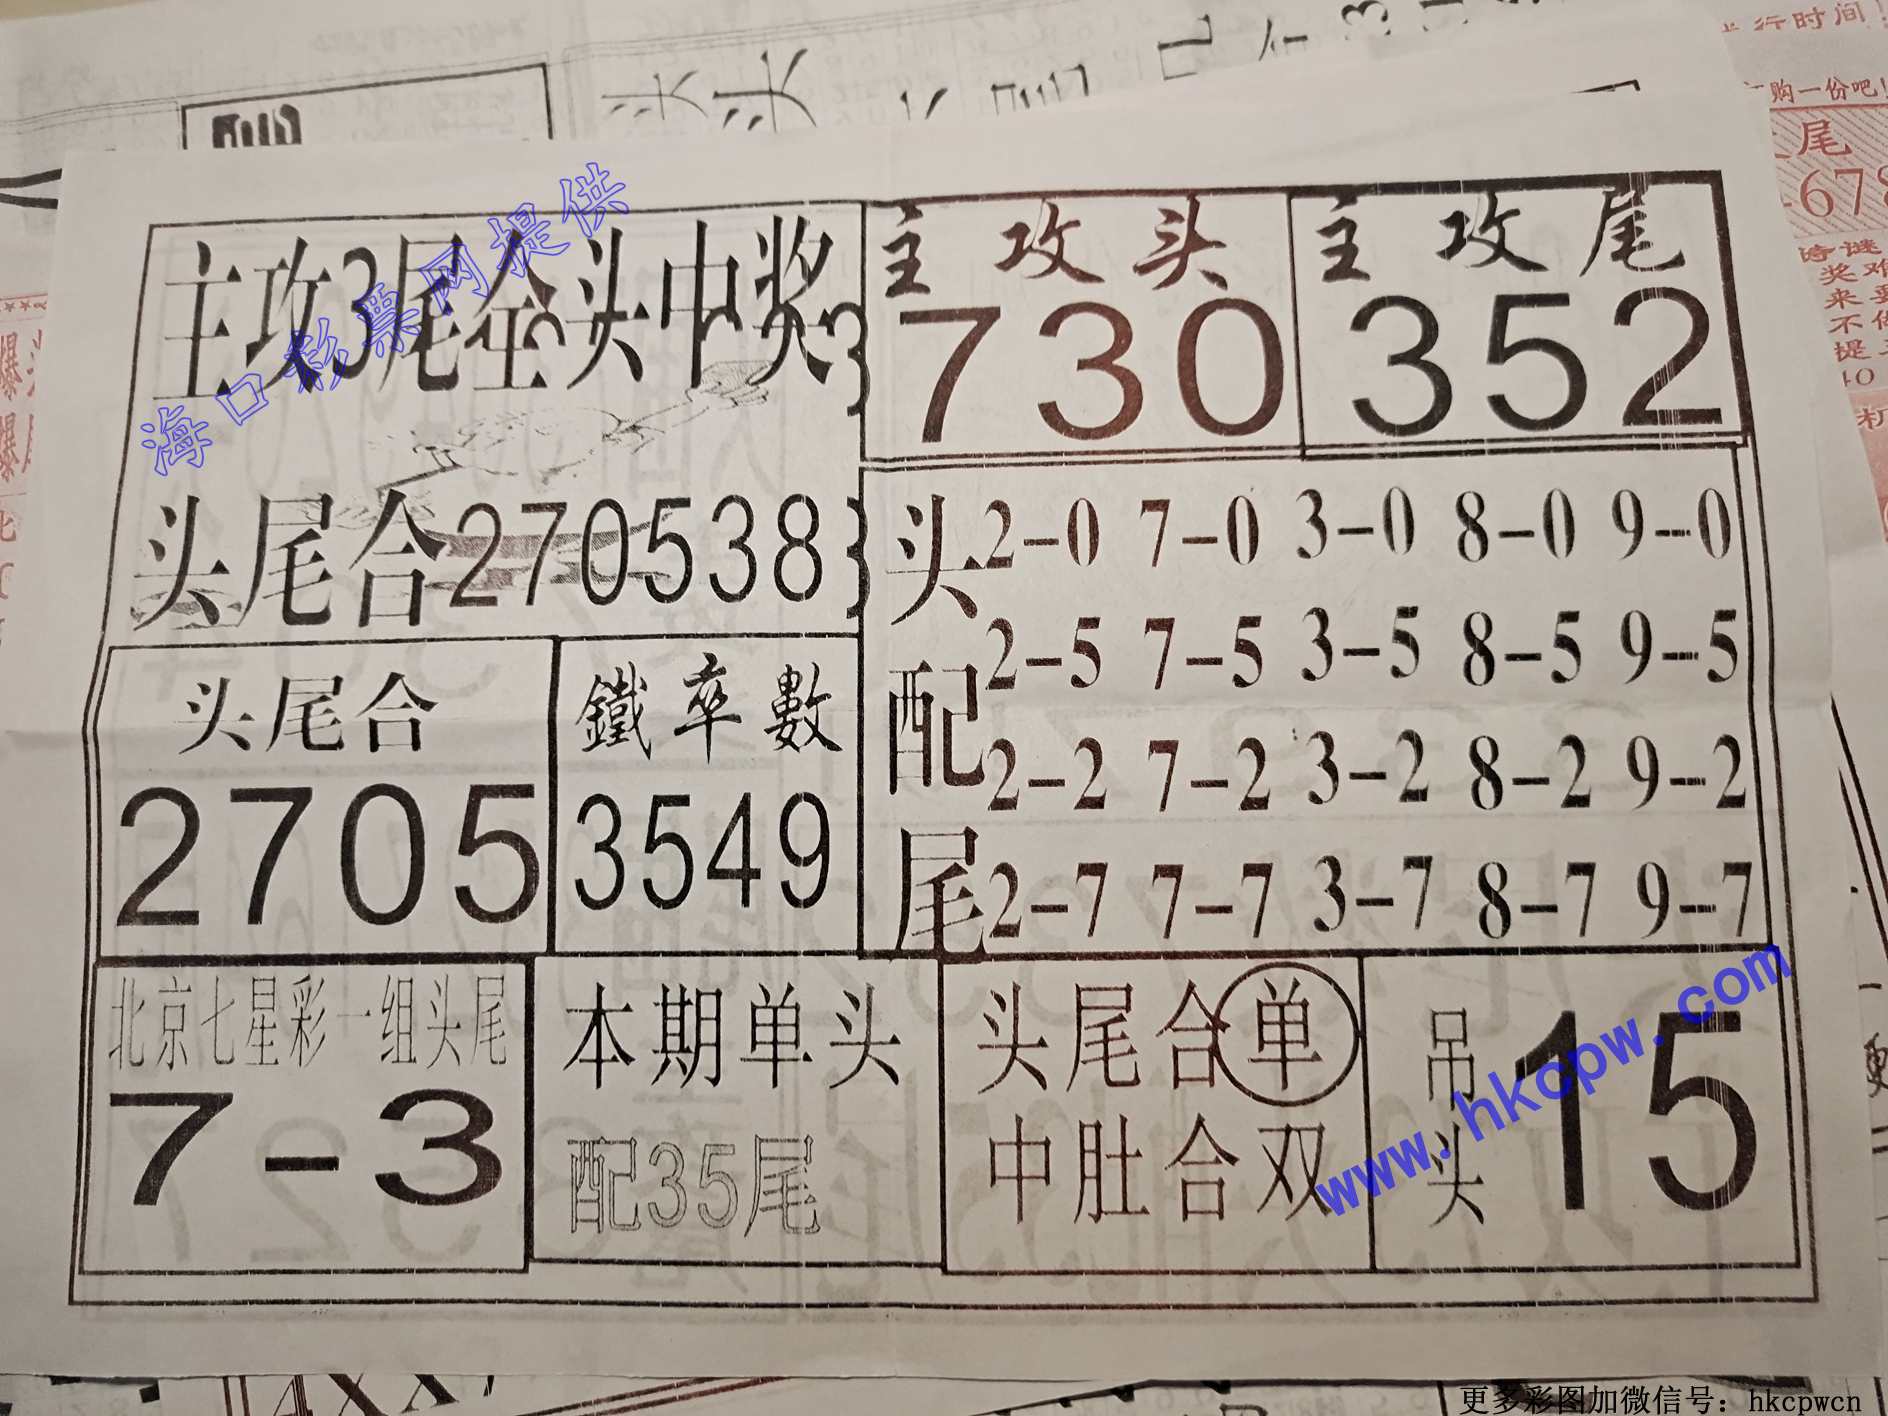 主攻3尾全头中奖
海口彩票网提供
头尾合270538
主攻头
730
主攻尾
352
头配尾
2-0 7-0 3-0 8-0 9-0
2-5 7-5 3-5 8-5 9-5
2-2 7-2 3-2 8-2 9-2
2-7 7-7 3-7 8-7 9-7
头尾合
2705
鐵率數
3549
北京七星彩一组头尾
7-3
本期单头
配35尾
头尾合单
中肚合双
吊头
15
www.hkcpw.com
行时间!
购一份吧!
尾
678
更多彩图加微信号：hkcpwcn